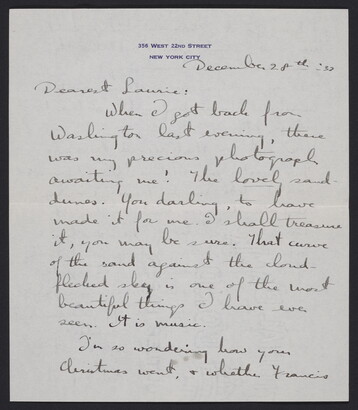 358 WEST 22ND STREET
NEW YORK CITY
December 28th : '32
Dearest Laurie:
When I got back from
Washington last evening, there
was my precious photograph
awaiting me! The lovely sand-
dunes. You darling, to have
made it for me. I shall treasure
it, you may be sure. That curve
of the sand against the cloud-
flecked sky is one of the most
beautiful things I have ever
seen. It is music.
I'm so wondering how your
Christmas went, & whether Francis